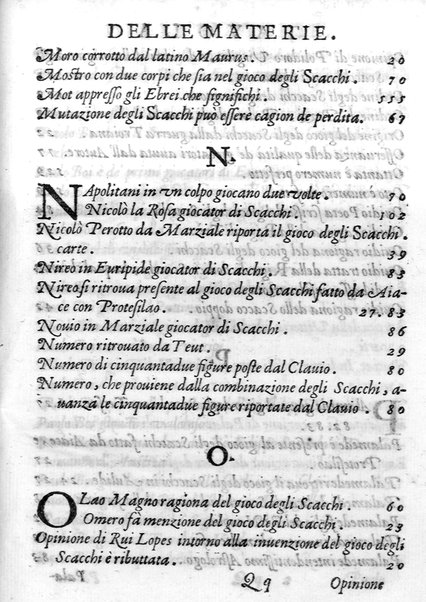 DELLE MATERIE.
Moro corrotto dal latino Maurus. 20
Mostro con due corpi che sia nel gioco degli Scacchi. 70
Mot appresso gli Ebrei che significhi. 555
Mutazione degli Scacchi può essere cagion de perdita. 67
N.
NApolitani in vn colpo giocano due volte. 70
Nicolò la Rosa giocator di Scacchi. 102
Nicolò Perotto da Marziale riporta il gioco degli Scacchi.
carte. 39
Nireo in Euripide giocator di Scacchi. 83
Nireo si ritroua presente al gioco degli Scacchi fatto da Aia-
ce con Protesilao. 27. 83
Nouio in Marziale giocator di Scacchi. 86
Numero ritrouato da Teut. 29
Numero di cinquantadue figure poste dal Clauio. 80
Numero, che prouiene dalla combinazione degli Scacchi, a-
uanza le cinquantadue figure riportate dal Clauio. 80
O.
OLao Magno ragiona del gioco degli Scacchi. 60
Omero fa menzione del gioco degli Scacchi. 23
Opinione di Rui Lopes intorno alla inuenzione del gioco degli
Scacchi è ributtata. 20
Qq Opinione